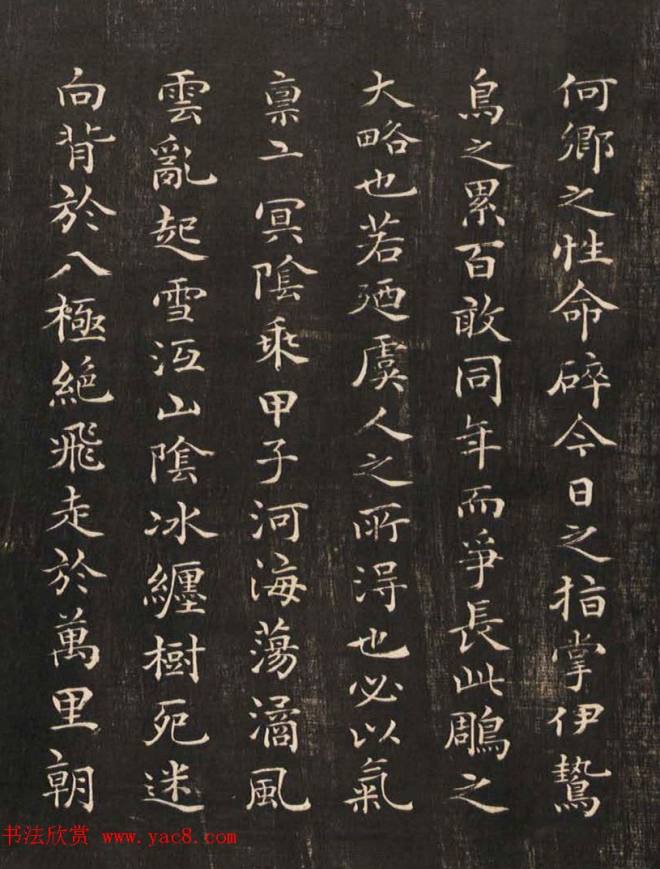 何鄉之性命碎今日之指掌伊鷙
鳥之累百敢同年而爭長此鵰之
大略也若廼虞人之所得也必以氣
禀玄冥陰乘甲子河海蕩潏風
雲亂起雪沍山陰冰纏樹死迷
向背於八極絕飛走於萬里朝
书法欣赏 www.yac8.com